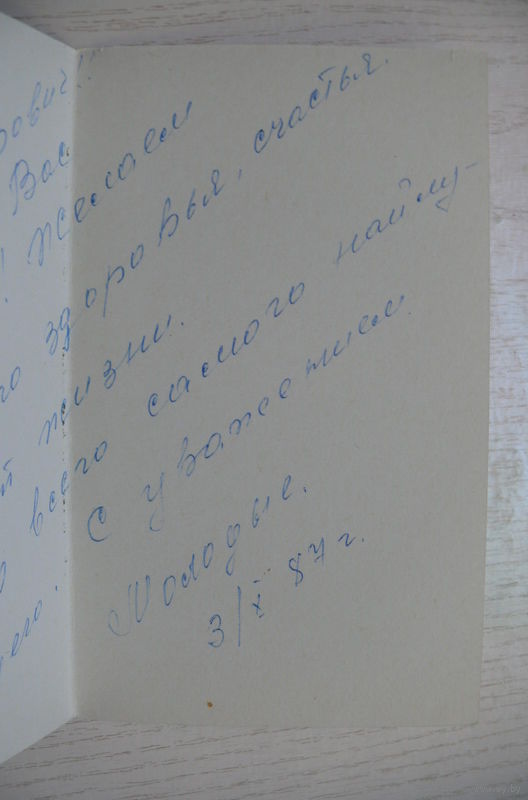 ович!!
Вас
! Желаем
го здоровья, счастья.
й жизни.
о всего самого найлу-
чего. С уважением
Молодые.
3/X 87 г.